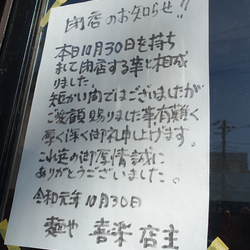 閉店のお知らせ!!
本日10月30日を持ち
まして閉店する事と相成
りました。
短かい間ではございましたが
ご愛顧賜りました事有難く
厚く深く御礼申上げます。
これ迄の御厚情誠に
ありがとうございました。
令和元年10月30日
麺や 喜楽 店主